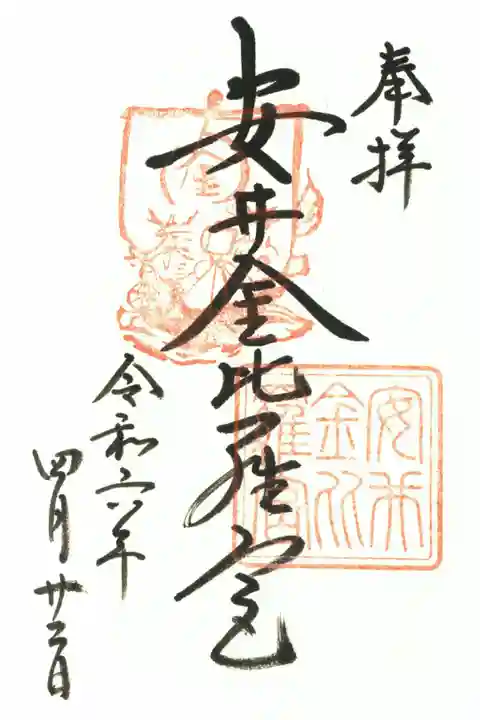 奉拝
安井金比羅宮
安井
金比
羅宮
令和六年
四月廿三日